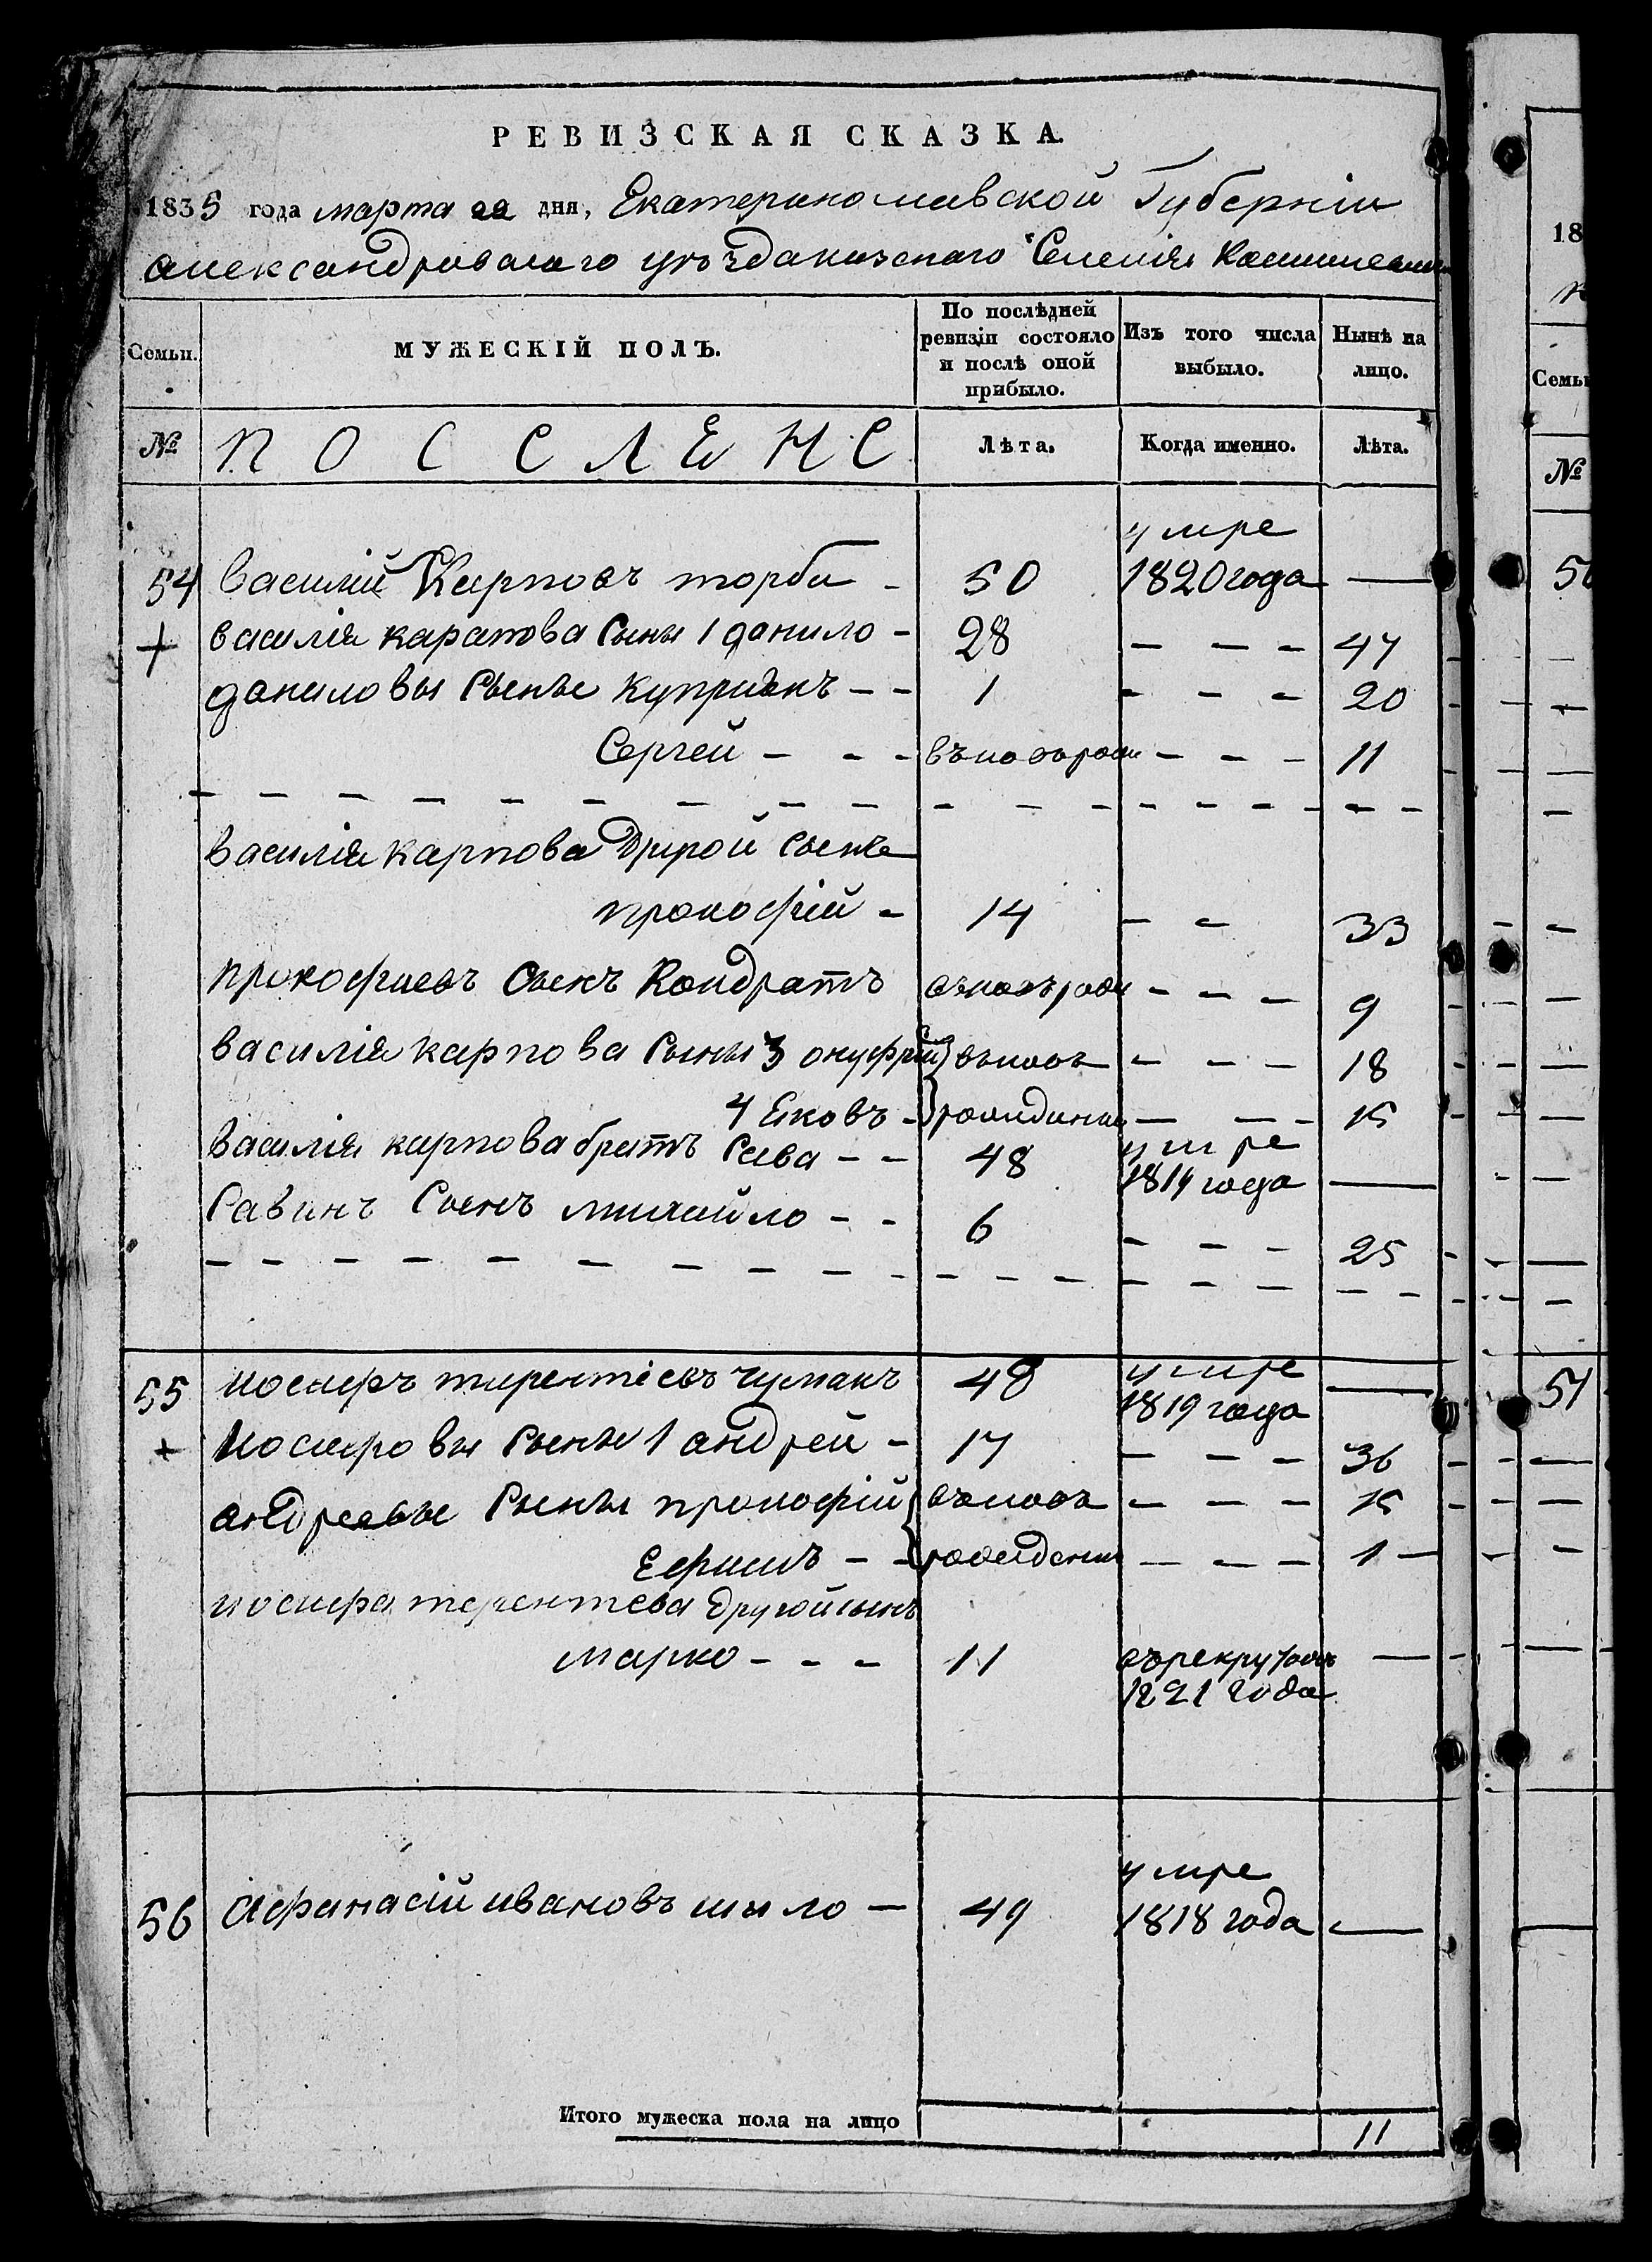 РЕВИЗСКАЯ СКАЗКА.
1835 года марта 22 дня, Екатеринославской Губерніи
александровскаго уѣзда казеннаго Селенія
Семьи. МУЖЕСКІЙ ПОЛЪ. По послѣдней ревизіи состояло и послѣ оной прибыло. Изъ того числа выбыло. Нынѣ на лицо.
№ П О С Е Л Е Н Е Лѣта. Когда именно. Лѣта.
умре
54 василій Карповъ торба - 50 1820 года —
+ василія карпова сыны 1 данило - 28 - - - 47
даниловы сыны Куприянъ - - 1 - - - 20
Сергей - - - въновърож - - - 11
василія карпова Другой сынъ
прокофій - 14 - - 33
прокофиевъ сынъ Кондратъ въновърож - - - 9
василія карпова сыны 3 онуфрій } вьновь - - - 18
4 Яковъ - } рожденны - - - 15
василія карпова братъ Сава - - 48 умре 1819 года —
Савинъ Сынъ михайло - - 6 - - - 25
55 иосифъ терентіевъ чумакъ 48 умре 1819 года —
+ Иосифовы сыны 1 андрей - 17 - - - 36
андреевы сыны прокофій { вьновь - - - 15
Ефимъ - - { рожденны - - - 1 -
иосифа терентева другой сынъ
марко - - - 11 въ рекруты 1821 года —
умре
56 Афанасій ивановъ шыло — 49 1818 года —
Итого мужеска пола на лицо 11
18
Семьи
№
51